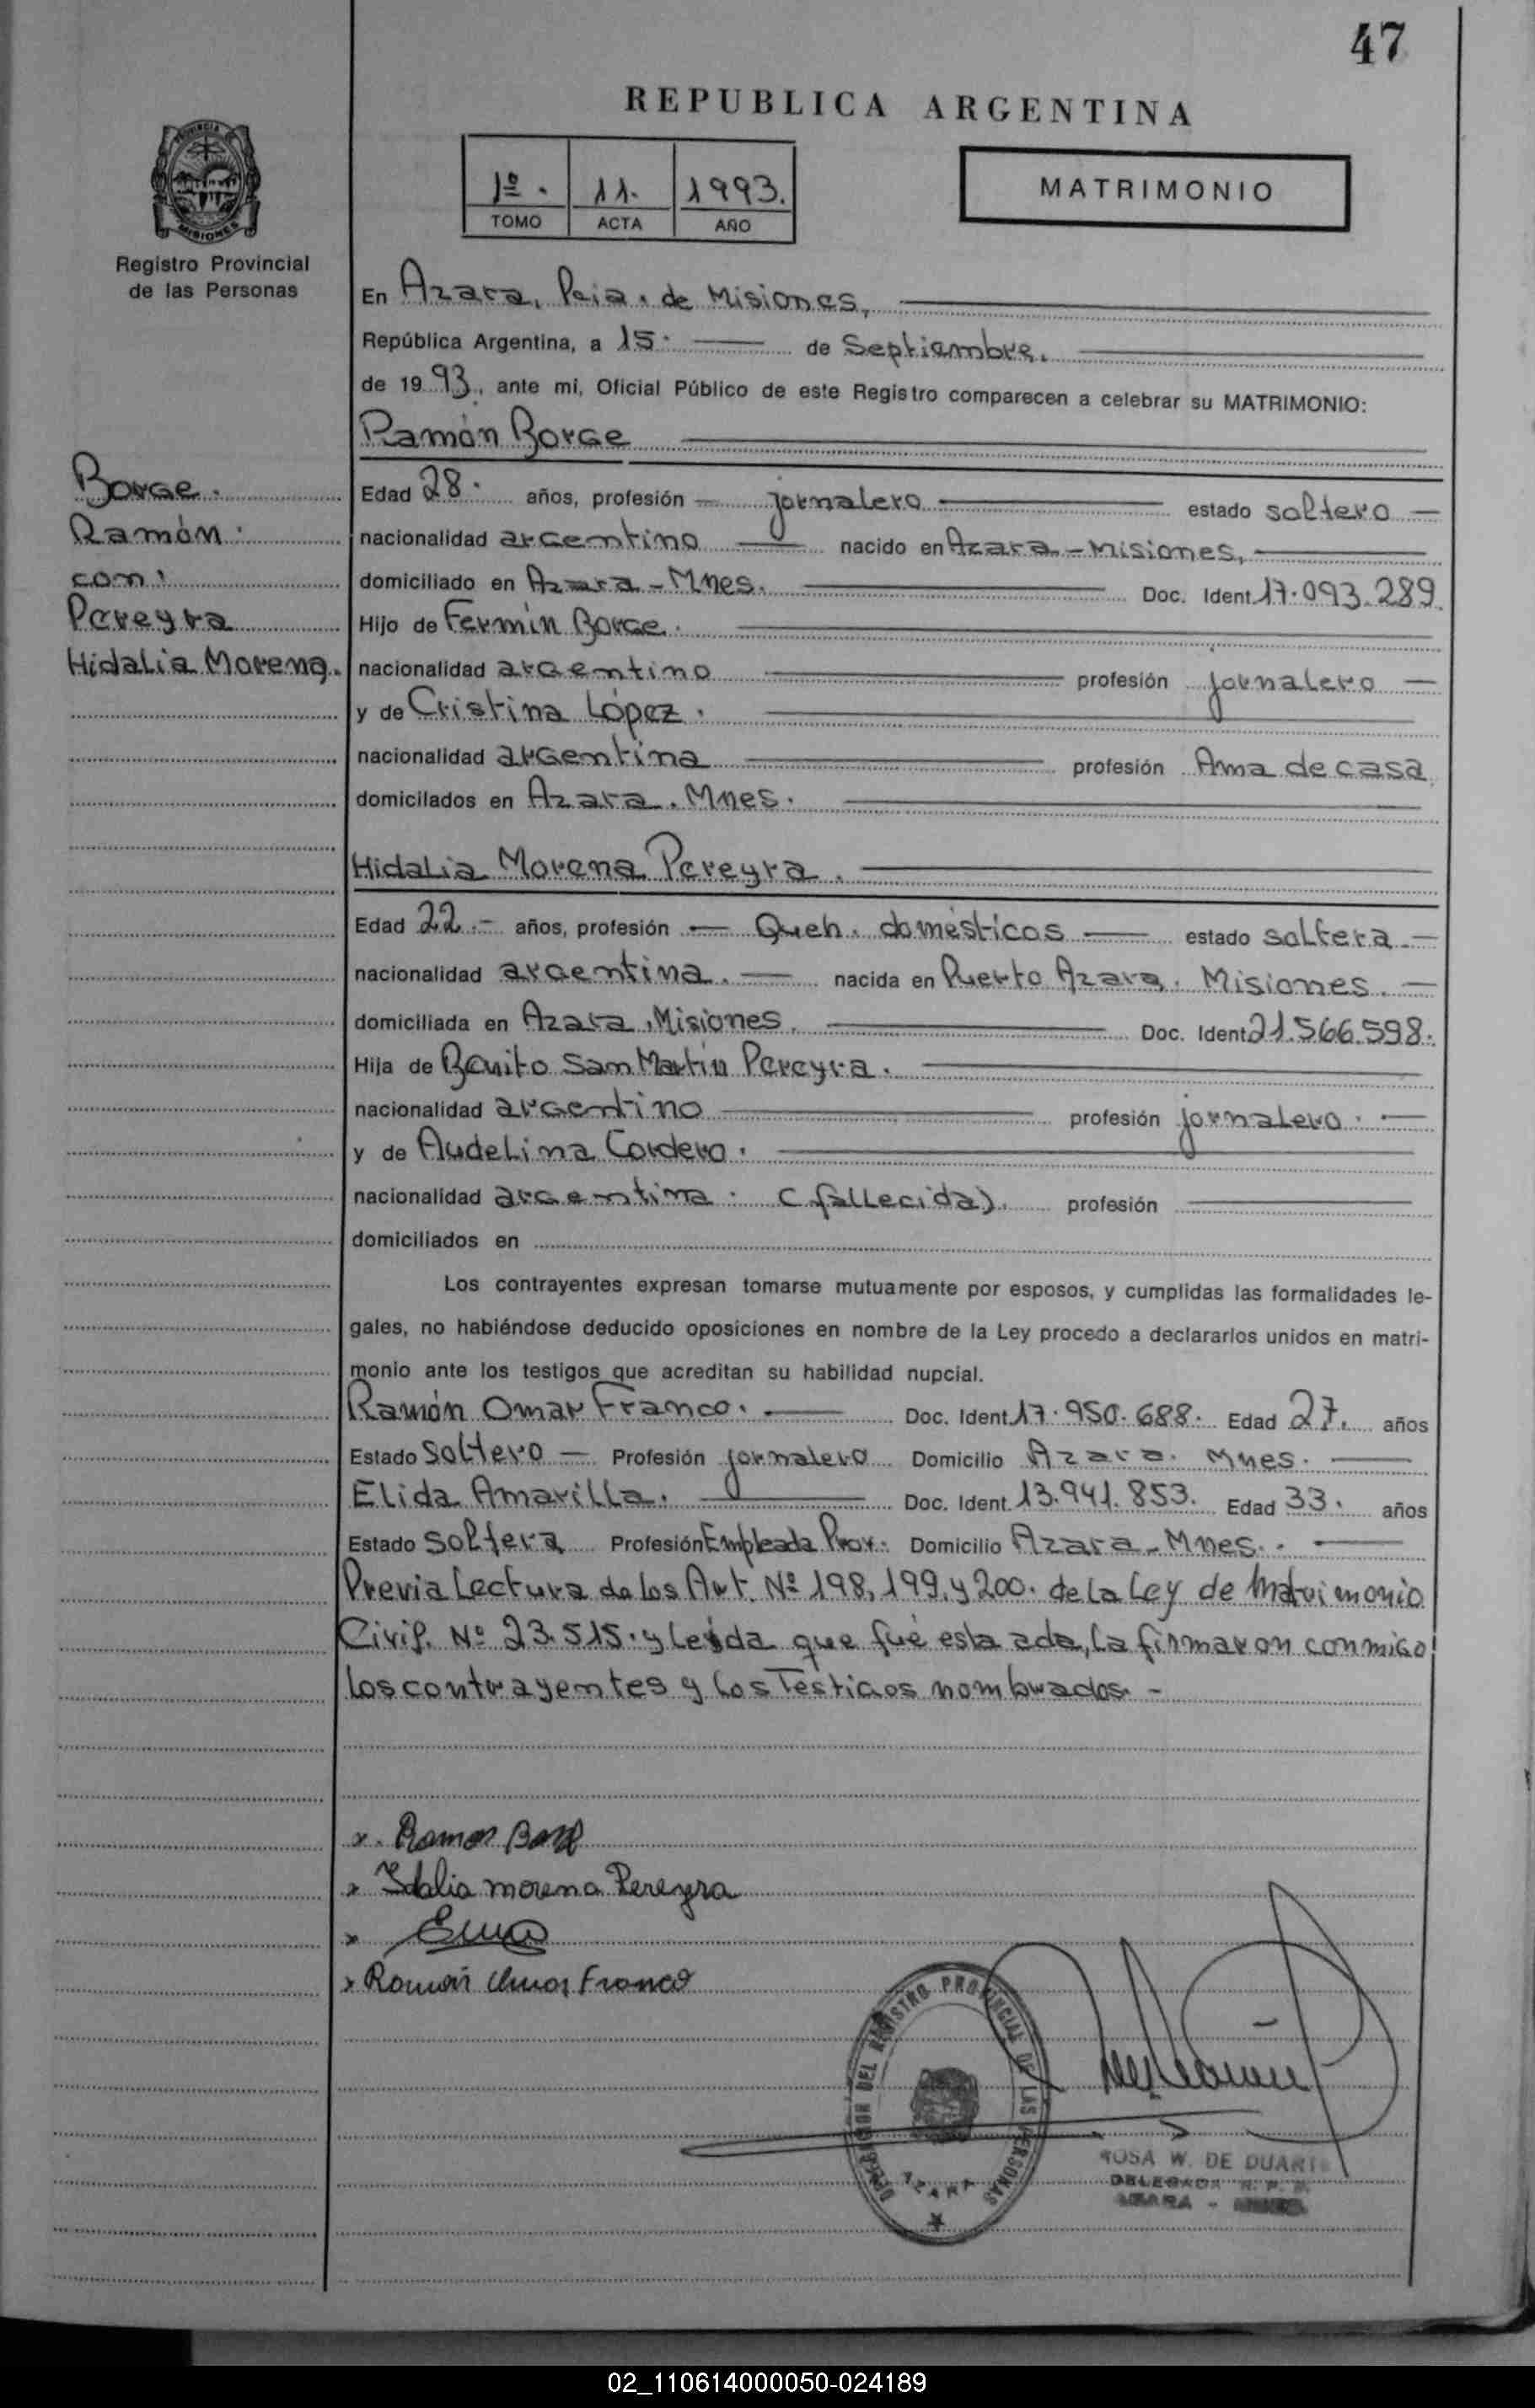 47
REPUBLICA ARGENTINA
1º. 11. 1993.
TOMO ACTA AÑO
MATRIMONIO
PROVINCIA DE
MISIONES
Registro Provincial
de las Personas
En Azara, Pcia. de Misiones,
República Argentina, a 15. de Septiembre.
de 1993., ante mi, Oficial Público de este Registro comparecen a celebrar su MATRIMONIO:
Ramón Borge
Borge.
Ramón.
con:
Pereyra
Hidalia Morena.
Edad 28. años, profesión jornalero estado soltero
nacionalidad argentino nacido en Azara - Misiones,
domiciliado en Azara - Mnes. Doc. Ident. 17.093.289.
Hijo de Fermín Borge.
nacionalidad argentino profesión jornalero
y de Cristina López.
nacionalidad argentina profesión Ama de casa
domicilados en Azara. Mnes.
Hidalia Morena Pereyra.
Edad 22.- años, profesión Queh. domésticos estado soltera
nacionalidad argentina. nacida en Puerto Azara. Misiones.
domiciliada en Azara, Misiones. Doc. Ident. 21.566.598.
Hija de Benito San Martín Pereyra.
nacionalidad argentino profesión jornalero.
y de Audelina Cordero.
nacionalidad argentina. (fallecida). profesión
domiciliados en
Los contrayentes expresan tomarse mutuamente por esposos, y cumplidas las formalidades le-
gales, no habiéndose deducido oposiciones en nombre de la Ley procedo a declararlos unidos en matri-
monio ante los testigos que acreditan su habilidad nupcial.
Ramón Omar Franco. Doc. Ident. 17.950.688. Edad 27. años
Estado Soltero Profesión jornalero Domicilio Azara. Mnes.
Elida Amarilla. Doc. Ident. 13.941.853. Edad 33. años
Estado Soltera Profesión Empleada Prov. Domicilio Azara - Mnes.
Previa Lectura de los Art. Nº 198, 199, y 200. de la Ley de Matrimonio
Civil. Nº 23.515. y leida que fué esta acta, la firmaron conmigo
los contrayentes y los Testigos nombrados. -
x. Ramon
x Idalia morena Pereyra
x
x Ramón Omar Franco
DELEGACION DEL REGISTRO PROVINCIAL DE LAS PERSONAS
AZARA
ROSA W. DE DUARTE
DELEGADA R. P. P.
AZARA - MNES.
02_110614000050-024189